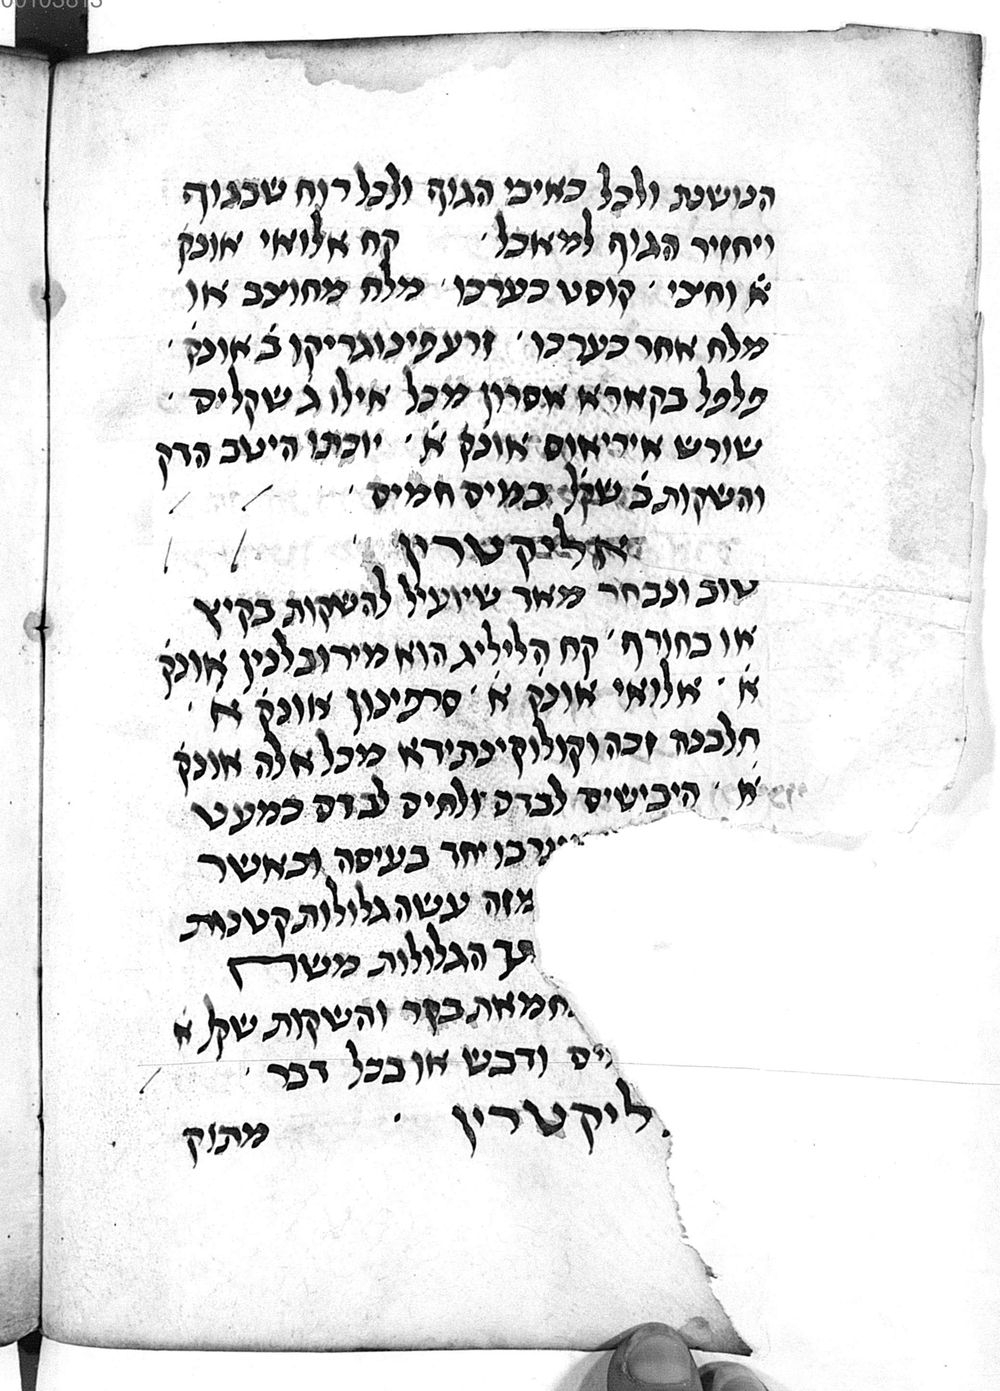 הנושנת ולכל כאיבי הגוף ולכל רוח שבגוף
ויחזיר הגוף למאכל׳ קח אלואי אונק׳
א׳ וחצי׳ קוסט כערכו׳ מלח מחוצב או
מלח אחר כערכו׳ זרע פינוגריקו ב׳ אונק׳
פלפל בקארא אסרון מכל אילו ג שקלים׳
שורש איריאוס אונק׳ א׳ יוכתו היטב הדק
והשקות ב׳ שקל במים חמים׳
אליקטרין
טוב ונבחר מאד שיועיל להשקות בקיץ
או בחורף׳ קח הליליג הוא מירובלנין אונק׳
א׳ אלואי אונק׳ א׳ סרפינון אונק׳ א׳
חלבנה זכה וקולוקינתידא מכל אלה אונק׳
א׳ היבישים לבדם ולחים לבדם כמעט
יחד בעיסה וכאשר
מזה עשה גלולות קטנות
הגלולות משח
חמאת בקר והשקות שקל א׳
ודבש או בכל דבר׳
ליקטרין׳ מתוק